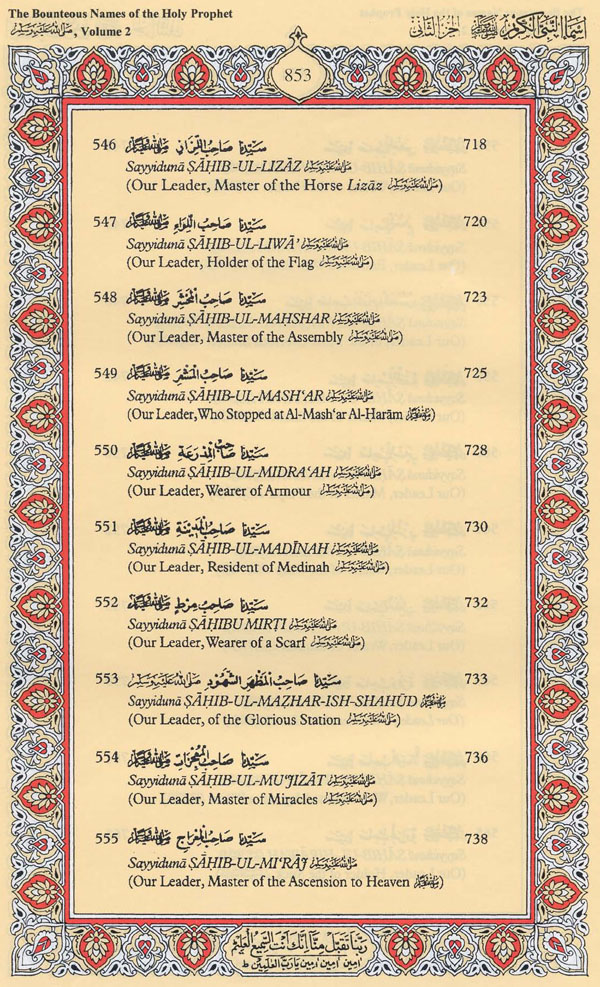 The Bounteous Names of the Holy Prophet
ﷺ, Volume 2
أسماء النبي الكريم ﷺ الجزء الثاني
853
546 سَيِّدُنَا صَاحِبُ اللِّزَازِ ﷺ 718
Sayyidunā ṢĀḤIB-UL-LIZĀZ ﷺ
(Our Leader, Master of the Horse Lizāz ﷺ)
547 سَيِّدُنَا صَاحِبُ اللِّوَاءِ ﷺ 720
Sayyidunā ṢĀḤIB-UL-LIWĀ’ ﷺ
(Our Leader, Holder of the Flag ﷺ)
548 سَيِّدُنَا صَاحِبُ الْمَحْشَرِ ﷺ 723
Sayyidunā ṢĀḤIB-UL-MAḤSHAR ﷺ
(Our Leader, Master of the Assembly ﷺ)
549 سَيِّدُنَا صَاحِبُ الْمَشْعَرِ ﷺ 725
Sayyidunā ṢĀḤIB-UL-MASH‘AR ﷺ
(Our Leader, Who Stopped at Al-Mash‘ar Al-Ḥarām ﷺ)
550 سَيِّدُنَا صَاحِبُ الْمِدْرَعَةِ ﷺ 728
Sayyidunā ṢĀḤIB-UL-MIDRA‘AH ﷺ
(Our Leader, Wearer of Armour ﷺ)
551 سَيِّدُنَا صَاحِبُ الْمَدِينَةِ ﷺ 730
Sayyidunā ṢĀḤIB-UL-MADĪNAH ﷺ
(Our Leader, Resident of Medinah ﷺ)
552 سَيِّدُنَا صَاحِبُ مِرْطٍ ﷺ 732
Sayyidunā ṢĀḤIBU MIRṬI ﷺ
(Our Leader, Wearer of a Scarf ﷺ)
553 سَيِّدُنَا صَاحِبُ الْمَظْهَرِ الشَّهُودِ ﷺ 733
Sayyidunā ṢĀḤIB-UL-MAẒHAR-ISH-SHAHŪD ﷺ
(Our Leader, of the Glorious Station ﷺ)
554 سَيِّدُنَا صَاحِبُ الْمُعْجِزَاتِ ﷺ 736
Sayyidunā ṢĀḤIB-UL-MU‘JIZĀT ﷺ
(Our Leader, Master of Miracles ﷺ)
555 سَيِّدُنَا صَاحِبُ الْمِعْرَاجِ ﷺ 738
Sayyidunā ṢĀḤIB-UL-MI‘RĀJ ﷺ
(Our Leader, Master of the Ascension to Heaven ﷺ)
رَبَّنَا تَقَبَّلْ مِنَّا إِنَّكَ أَنْتَ السَّمِيعُ الْعَلِيمُ
آمِين آمِين آمِين يَا رَبَّ الْعٰلَمِينَ ط